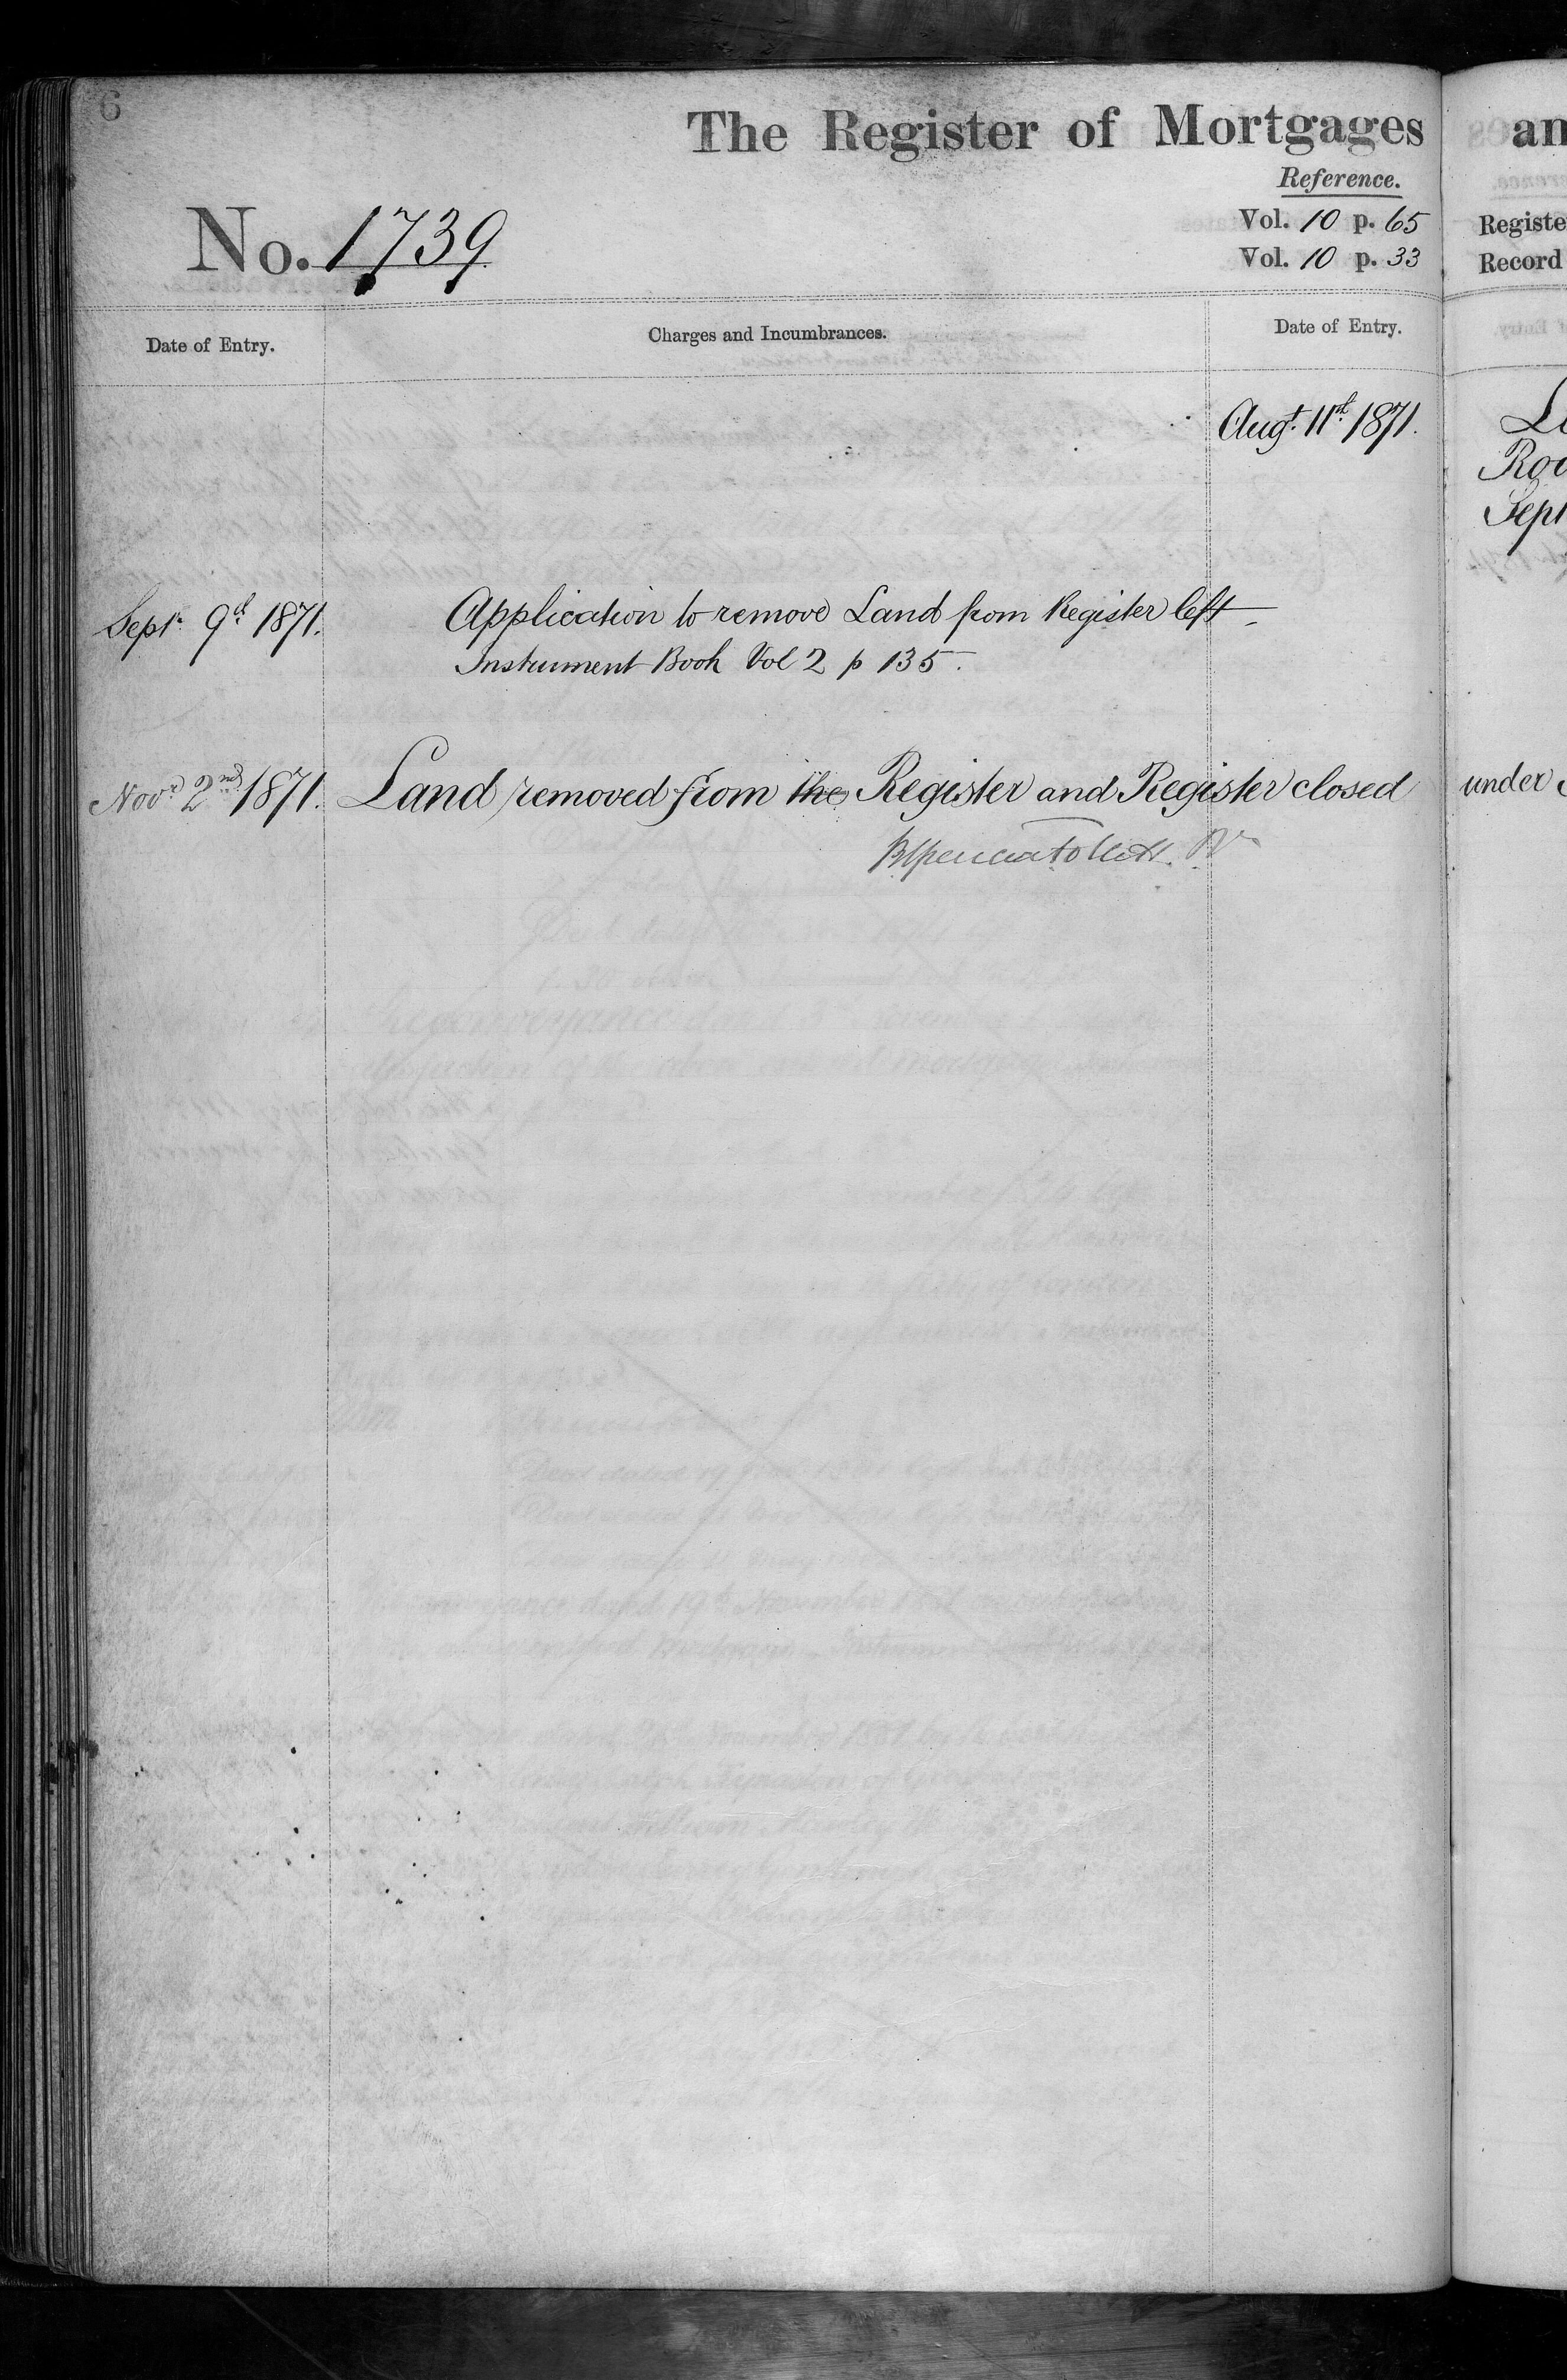 6
The Register of Mortgages
Reference.
Vol. 10 p. 65
No. 1739
Vol. 10 p. 33
Date of Entry.
Charges and Incumbrances.
Date of Entry.
Augt. 11th 1871.
Septr. 9th 1871.
Application to remove Land from Register left
Instrument Book Vol 2 p 135.
Novr. 2nd 1871.
Land removed from the Register and Register closed
an
Registe
Record
Sept
under